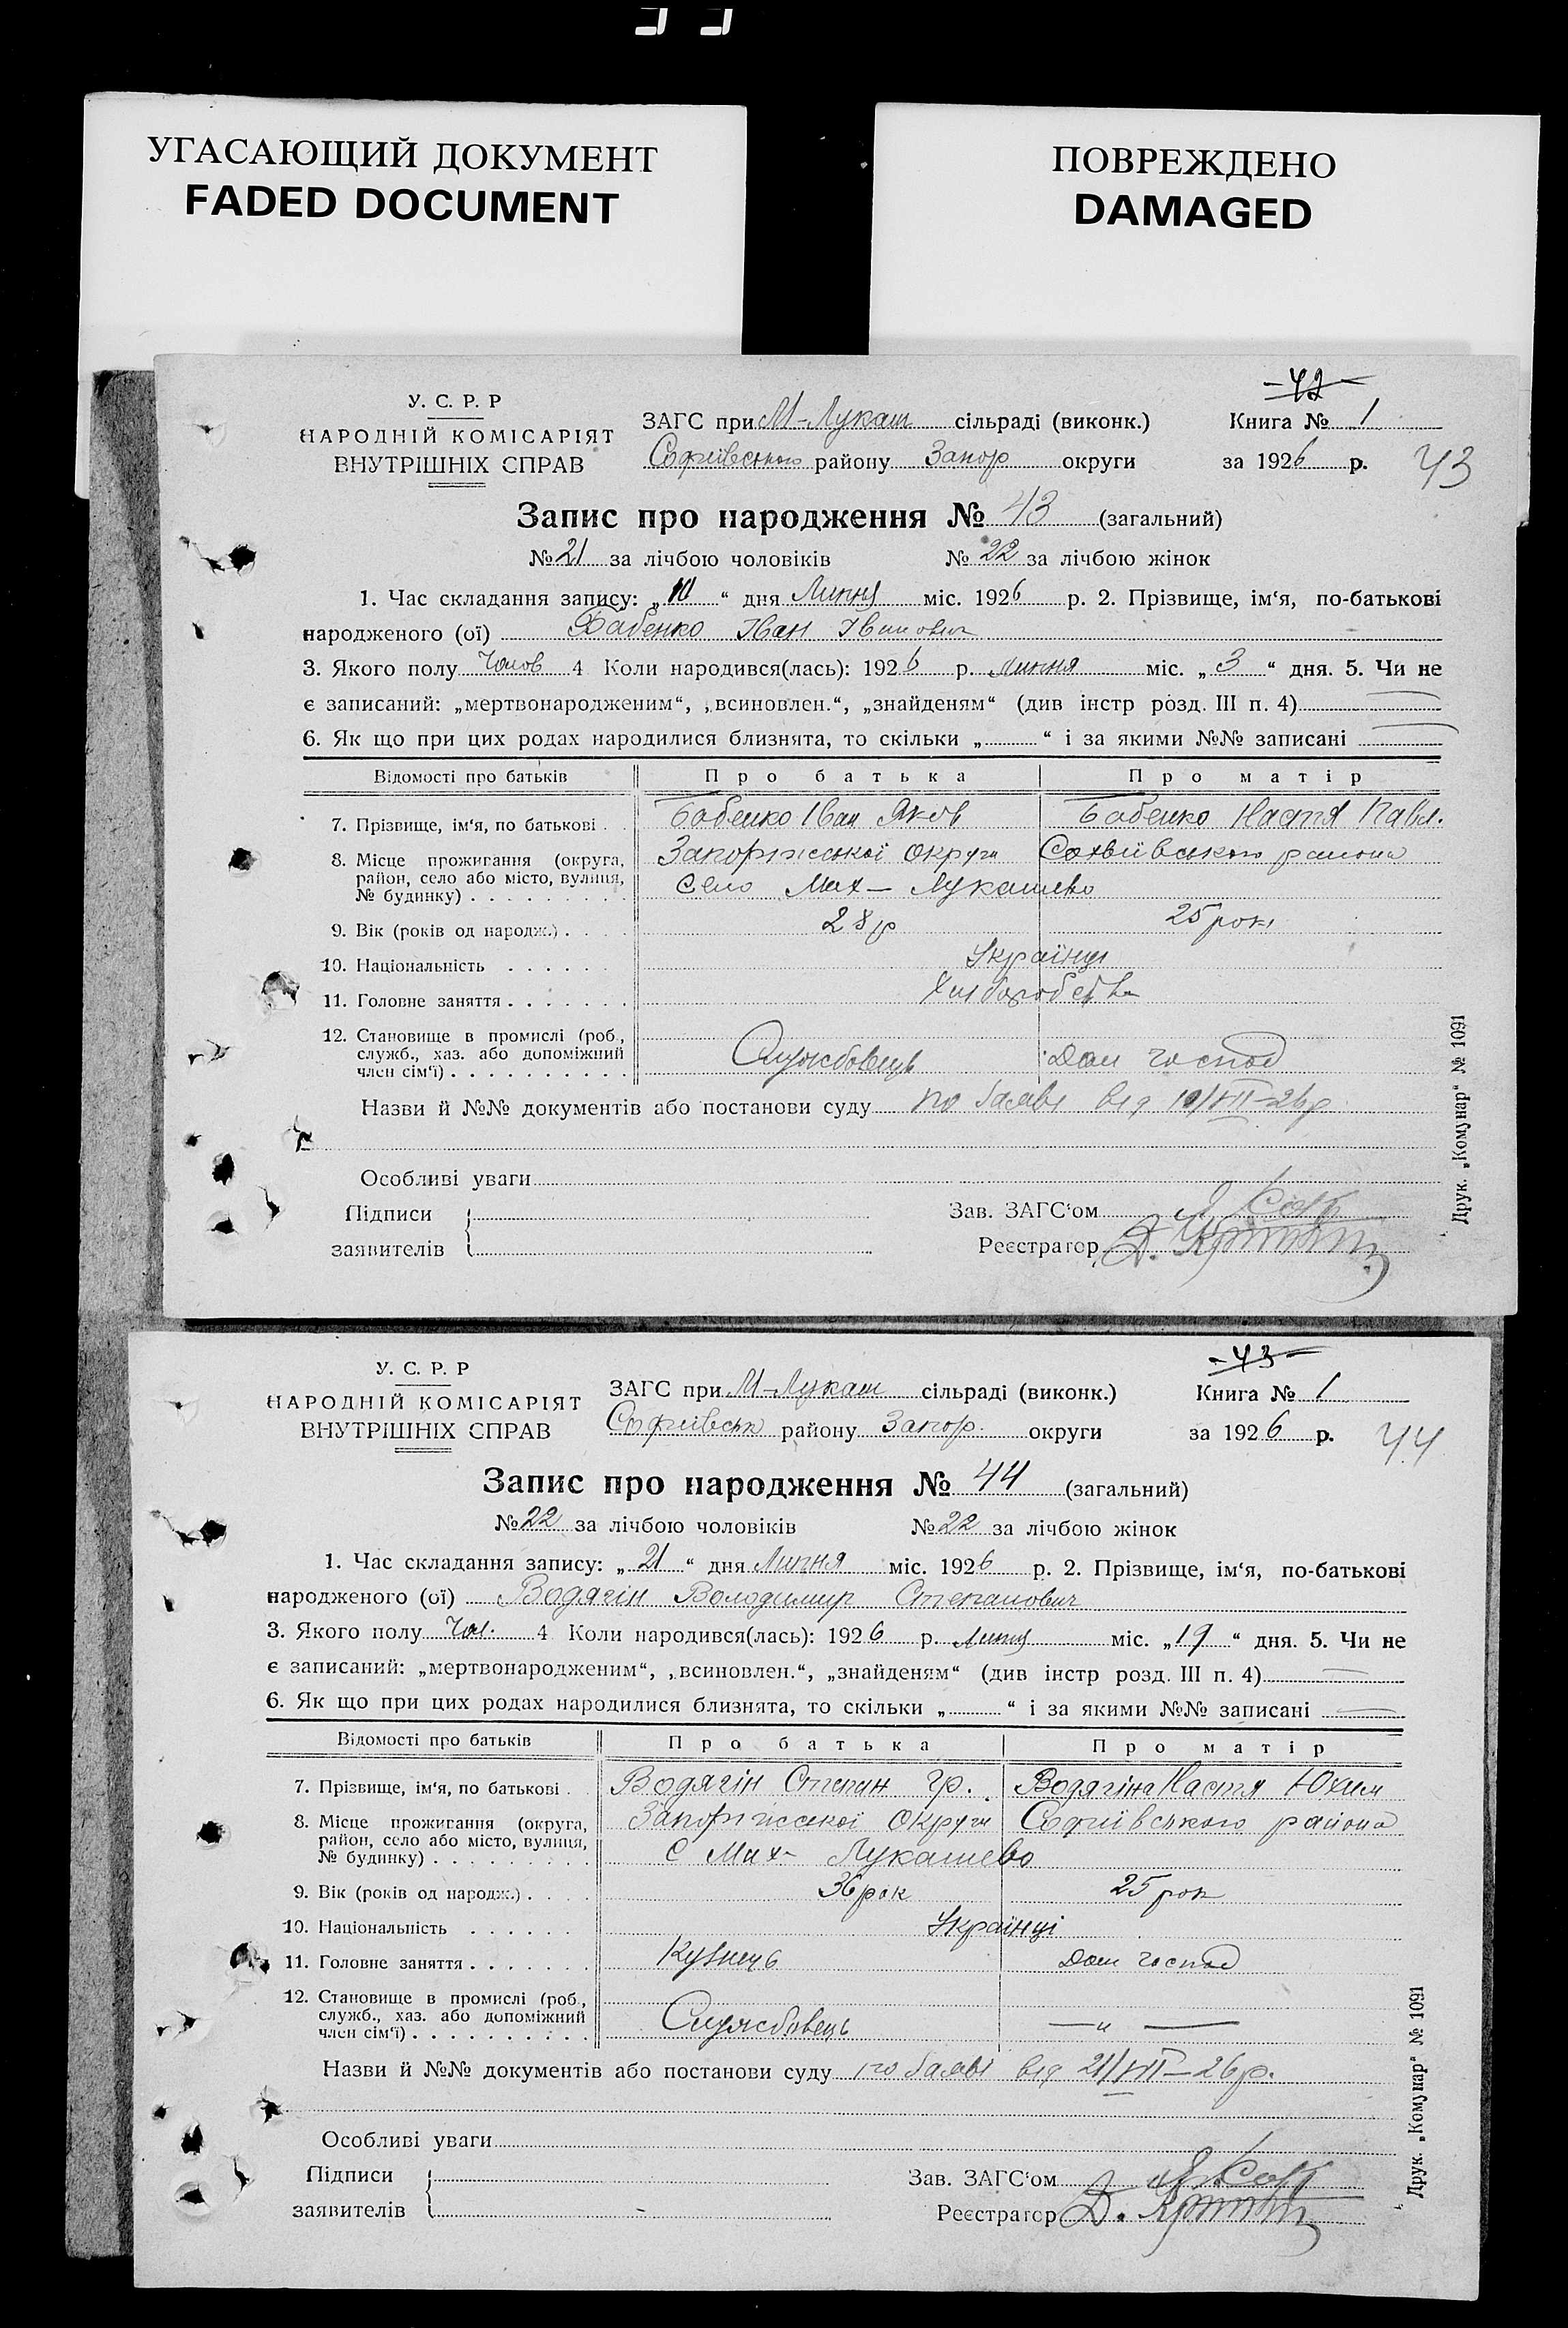 УГАСАЮЩИЙ ДОКУМЕНТ
FADED DOCUMENT
ПОВРЕЖДЕНО
DAMAGED
-42-
У. С. Р. Р
НАРОДНІЙ КОМІСАРІЯТ
ВНУТРІШНІХ СПРАВ
ЗАГС при М-Лукаш сільраді (виконк.)
Софиівського району Запор округи
Книга № 1
за 1926 р.
43
Запис про народження № 43 (загальний)
№ 21 за лічбою чоловіків № 22 за лічбою жінок
1. Час складання запису: „10“ дня Липня міс. 1926 р. 2. Прізвище, ім‘я, по-батькові
народженого (ої) Бабенко Іван Іванович
3. Якого полу Чолов 4 Коли народився(лась): 1926 р. липня міс. „3“ дня. 5. Чи не
є записаний: „мертвонародженим“, „всиновлен.“, „знайденям“ (див інстр розд. III п. 4)
6. Як що при цих родах народилися близнята, то скільки „ “ і за якими №№ записані
Відомості про батьків Про батька Про матір
7. Прізвище, ім‘я, по батькові . . Бабенко Іван Яков Бабенко Настя Павл.
8. Місце прожигання (округа, Запоріжської Округи Сохвиівського района
район, село або місто, вулиця, Село Мих- Лукашево
№ будинку) . . . . . . . . .
9. Вік (років од народж.) . . . . 28 р 25 рок
10. Національність . . . . . . Українці
11. Головне заняття . . . . . . . Хліборобство
12. Становище в промислі (роб.,
служб., хаз. або допоміжний Службовець Дом господ
член сім‘ї) . . . . . . . . . .
Назви й №№ документів або постанови суду по заяві від 10/VII-26р
Особливі уваги
Підписи
заявителів
Зав. ЗАГС‘ом
Реєстратор Д.
Друк. „Комунар“ № 1091
-43-
У. С. Р. Р
НАРОДНІЙ КОМІСАРІЯТ
ВНУТРІШНІХ СПРАВ
ЗАГС при М-Лукаш сільраді (виконк.)
Софиівськ району Запор. округи
Книга № 1
за 1926 р.
44
Запис про народження № 44 (загальний)
№ 22 за лічбою чоловіків № 22 за лічбою жінок
1. Час складання запису: „21“ дня Липня міс. 1926 р. 2. Прізвище, ім‘я, по-батькові
народженого (ої) Водягін Володимир Степанович
3. Якого полу Чол. 4 Коли народився(лась): 1926 р. Липня міс. „19“ дня. 5. Чи не
є записаний: „мертвонародженим“, „всиновлен.“, „знайденям“ (див інстр розд. III п. 4)
6. Як що при цих родах народилися близнята, то скільки „ “ і за якими №№ записані
Відомості про батьків Про батька Про матір
7. Прізвище, ім‘я, по батькові . Водягін Степан Гр. Водягіна Настя Юхим
8. Місце прожигання (округа, Запоріжської Округи Софиівського района
район, село або місто, вулиця, С Мих- Лукашево
№ будинку) . . . . . . . . .
9. Вік (років од народж.) . . . . 36 рок 25 рок
10. Національність . . . . . . Українці
11. Головне заняття . . . . . . . Кузнець Дом господ
12. Становище в промислі (роб.,
служб., хаз. або допоміжний Службовець — " —
член сім‘ї) . . . . . . . . . .
Назви й №№ документів або постанови суду по заяві від 21/VII-26р.
Особливі уваги
Підписи
заявителів
Зав. ЗАГС‘ом
Реєстратор Д.
Друк. „Комунар“ № 1091